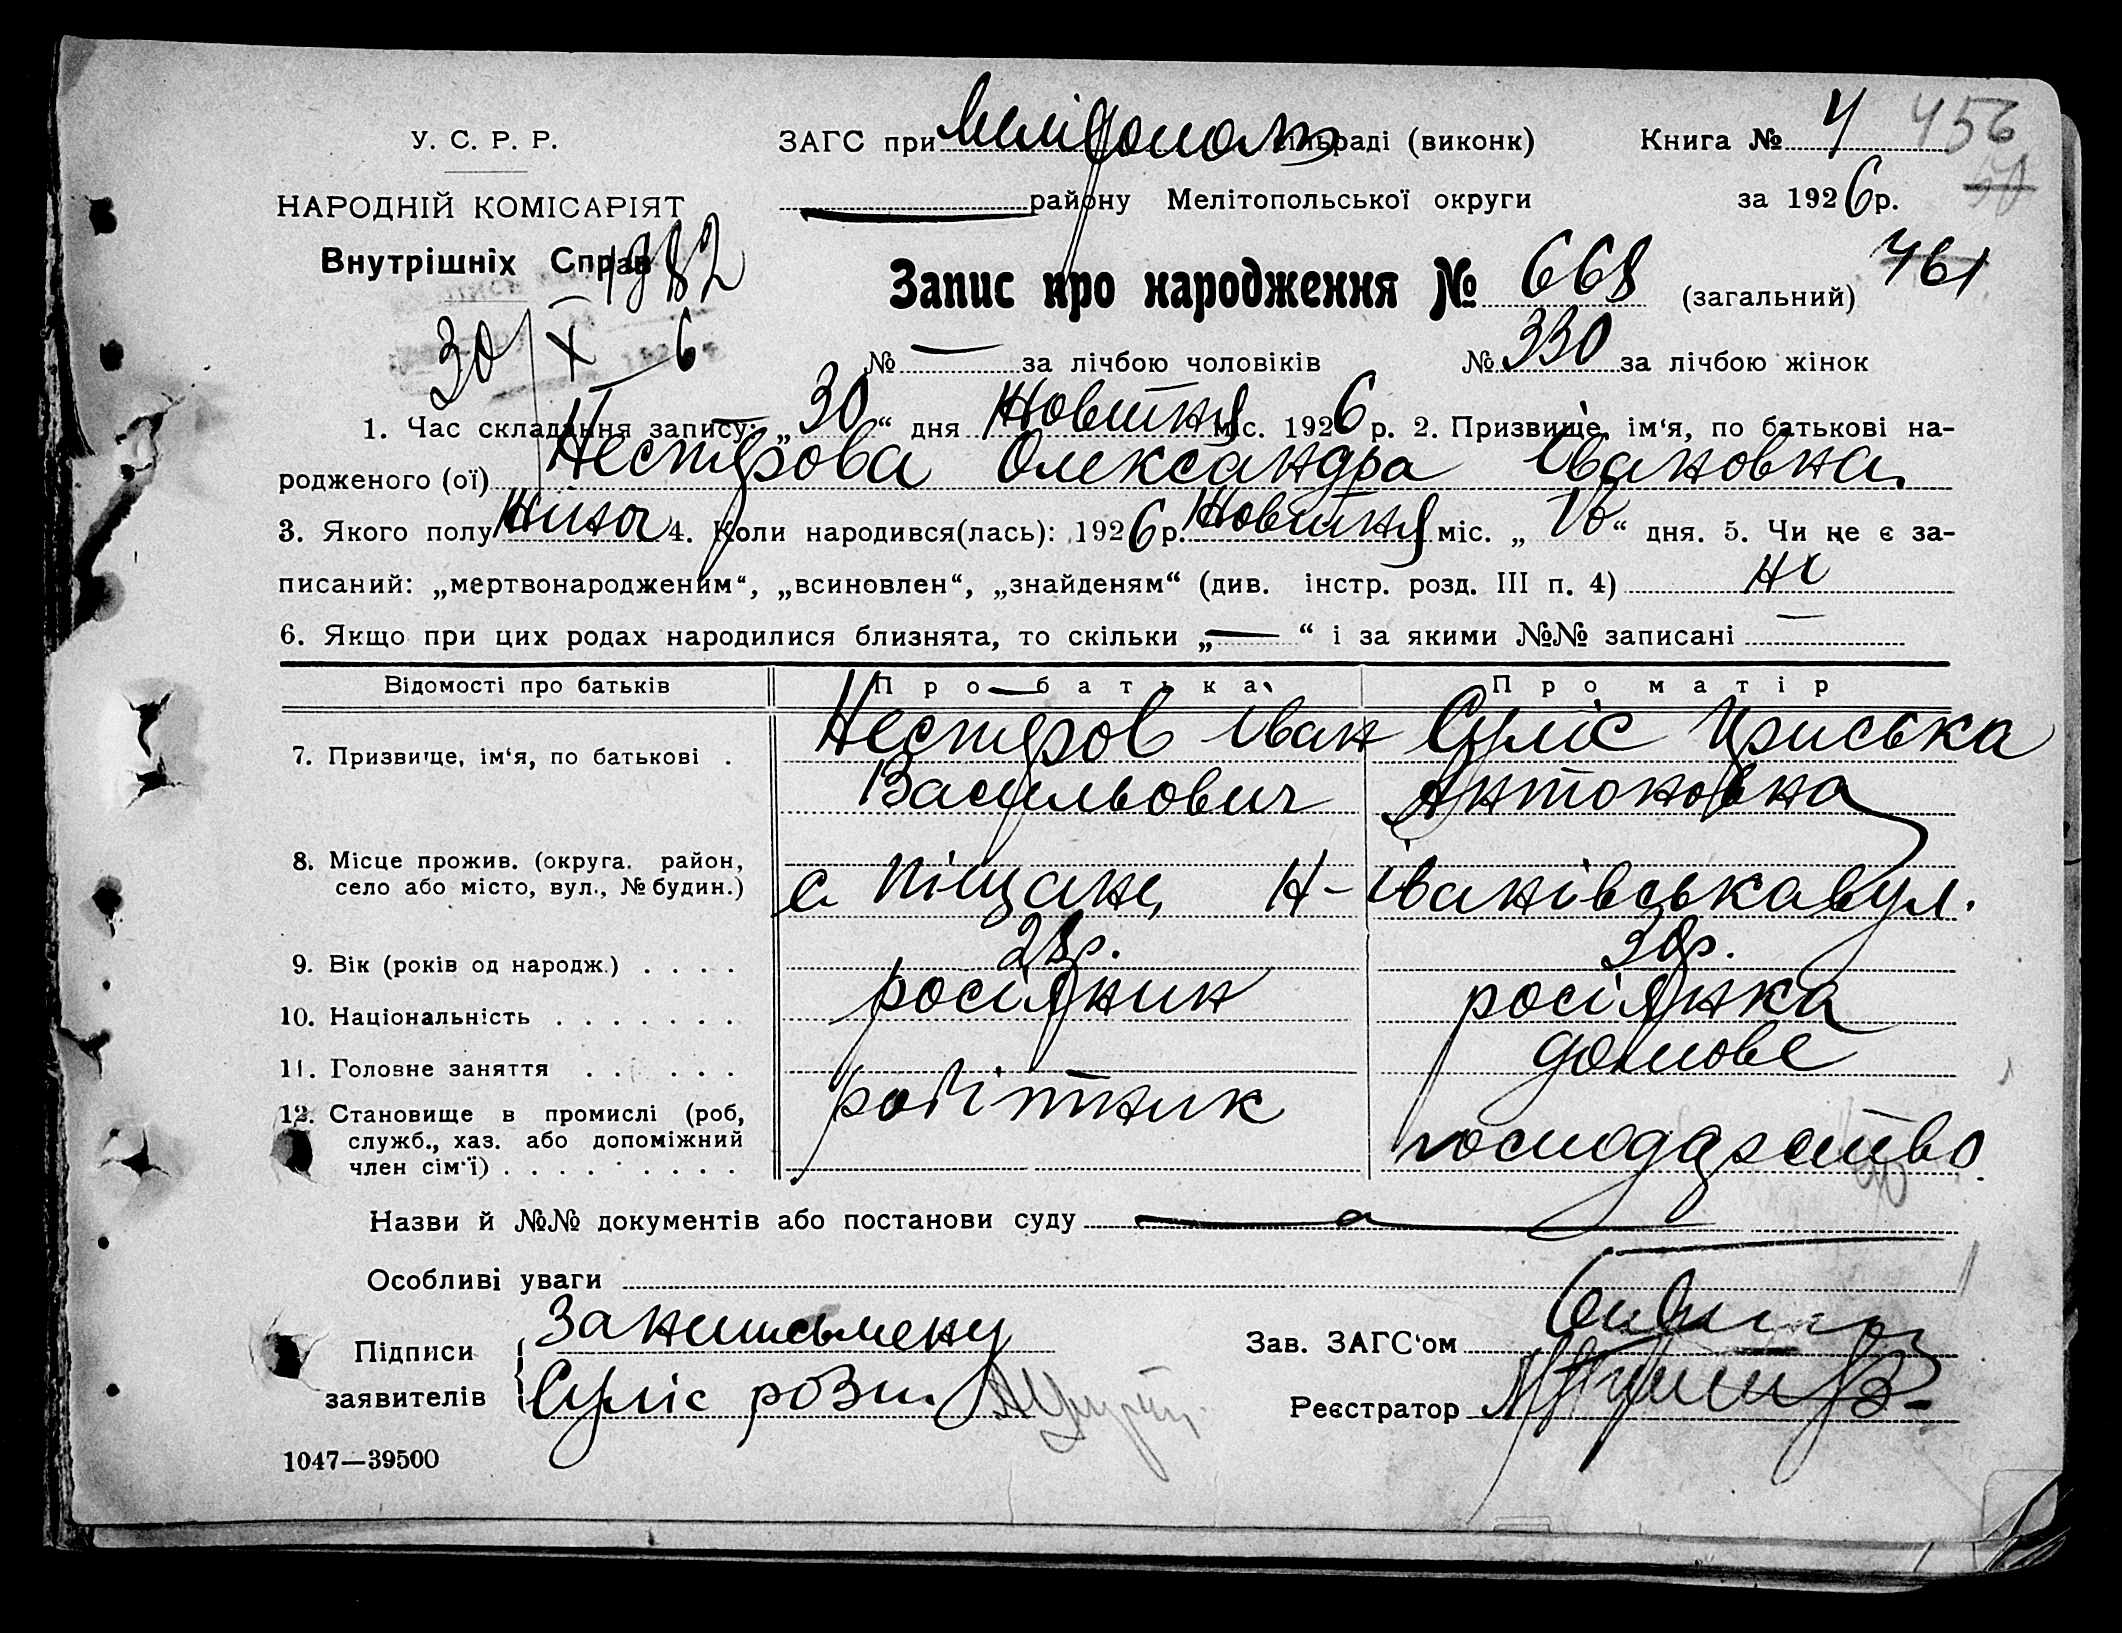 У. С. Р. Р.
ЗАГС при Мелітополь сільраді (виконк) Книга № 4 456
НАРОДНІЙ КОМІСАРІЯТ
району Мелітопольської округи за 1926 р.
Внутрішніх Справ 1982
Запис про народження № 668 (загальний) 461
30/X 6
№ — за лічбою чоловіків № 330 за лічбою жінок
1. Час складання запису: „30“ дня Жовтня міс. 1926 р. 2. Призвище, ім‘я, по батькові на-
родженого (ої) Нестерова Олександра Івановна
3. Якого полу жиноч 4. Коли народився(лась): 1926 р. Жовтня міс. „16“ дня. 5. Чи не є за-
писаний: „мертвонародженим“, „всиновлен“, „знайденям“ (див. інстр. розд. III п. 4) не
6. Якщо при цих родах народилися близнята, то скільки „—“ і за якими №№ записані —
Відомості про батьків Про батька Про матір
7. Призвище, ім‘я, по батькові . Нестеров Іван Суліс Ириська
Васильович Антоновна
8. Місце прожив. (округа. район,
село або місто, вул., № будин.) с. Піщане, Н-Іванівська вул.
9. Вік (років од народж.) . . . . 28 р. 30 р.
10. Національність . . . . . . . росіянин росіянка
11. Головне заняття . . . . . . домове
12. Становище в промислі (роб, робітник
служб., хаз. або допоміжний господарство
член сім‘ї) . . . . . . . . .
Назви й №№ документів або постанови суду —
Особливі уваги
Підписи За неписьмену
заявителів Суліс розп.
Зав. ЗАГС‘ом
Реєстратор
1047—39500